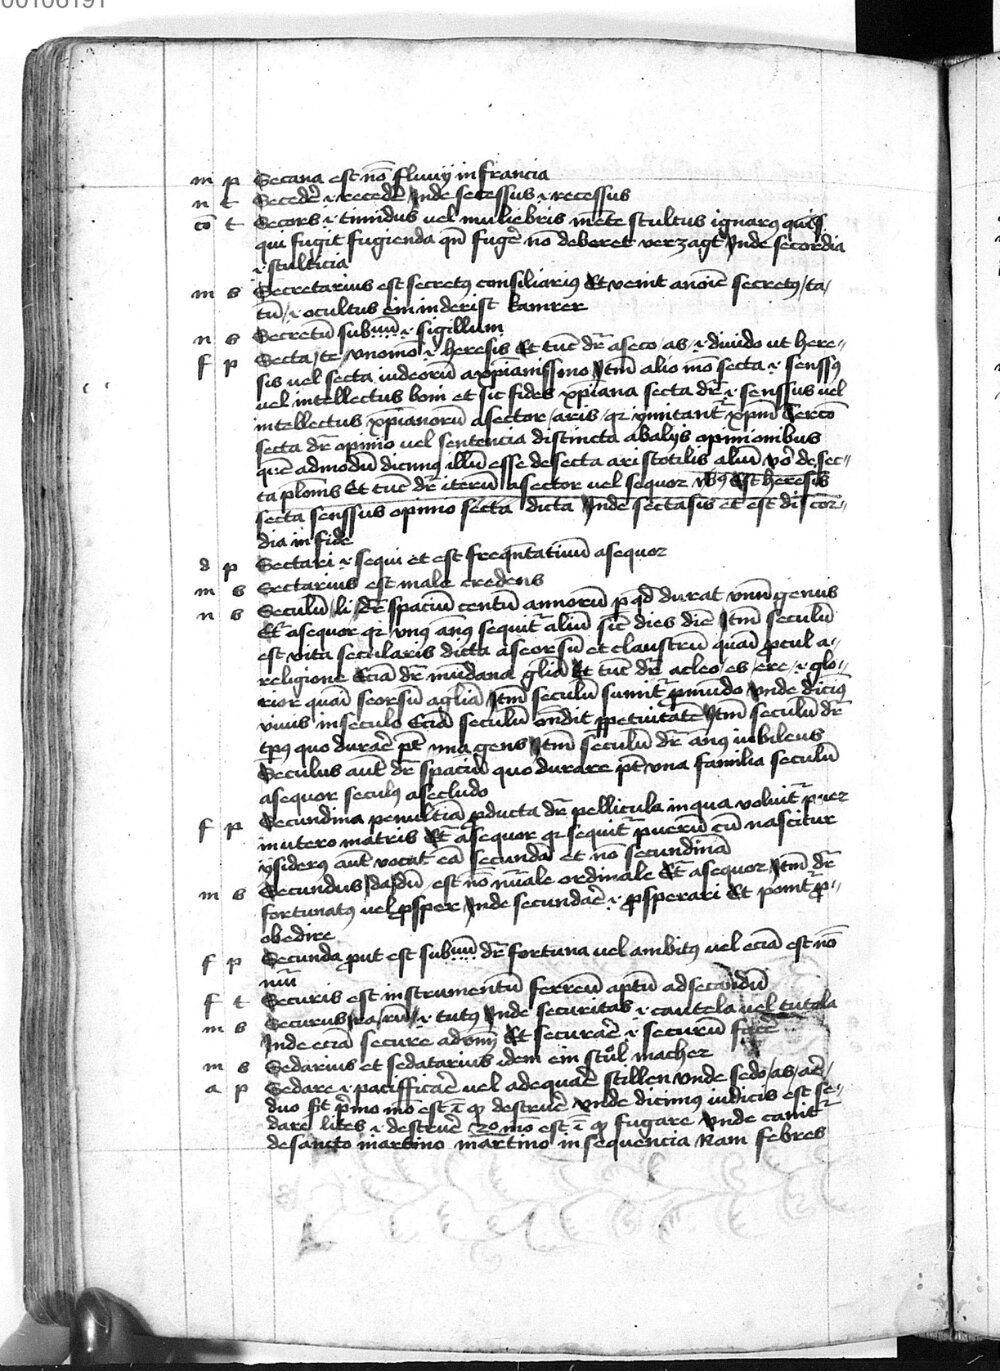 00106191
m p Secana est nō fluvij in francia
n t Secedeꝛ̄ .i. recedeꝛ̄ Inde secessus .i. recessus
cō t Secors .i. timidus vel muliebris mēte stultus ignarꝰ quis
qui fugit fugienda qn̄ fugeꝛ̄ nō deberet verzagt Inde secordia
.i. stulticia
m s Secretarius est secretꝰ consiliariꝰ Et venit a nōie secretꝰ/ta/
tū/ .i. ocultus ein inderist kamrer
n s Secretū subm̄ .i. sigillum
f p Secta/te/ vno mō .i. heresis Et tūc dr̄ a seco/as/ .i. divido ut here-
sis vel secta iudeorū a xp̄ianissimo Itm̄ alio mō secta .i. senssꝰ
vel intellectus boni et sic fides xp̄iana secta dr̄ .i. senssus vel
intellectus xp̄ianorū a sector/aris/ qꝛ ymitant̄ xp̄m Tercō
secta dr̄ opinio vel sentencia distincta ab alijs opinionibus
quē admodū dicimꝰ illū esse de secta aristotilis aliū vō de sec-
ta plōnis Et tūc dr̄ iterū a sector vel sequor vsꝰ Est heresis
secta senssus opinio secta dicta Inde sectasis et est discor-
dia in fide
d p Sectari .i. sequi et est freqn̄tatiuū a sequor
m s Sectarius est male credens
n s Seculū/li/ dr̄ spaciū centū annorū p qd̄ durat vnū genus
Et̄ a sequor qꝛ vnꝰ anꝰ sequit̄ aliū sic̄ dies diē Itm̄ seculū
est vita secularis dicta a seorsū et claustrū quasi procul a
religione Eciā dr̄ mūdana gl̄ia Et tūc dr̄ a cleo/es/ere/ .i. glo-
rior quasi seorsū a gl̄ia Itm̄ seculū sumit̄ p mūdo Vnde dicimꝰ
viuis in seculo Eciā seculū ondit ppetuitatē Itm̄ seculū dr̄
tp̄us quo duraꝛ̄e pt̄ vna gens Itm̄ seculū dr̄ anꝰ iubileus
Seculus aut̄ dr̄ spaciū quo durare pt̄ vna familia seculū
a sequor seculꝰ a secludo
f p Secundina penultīa pducta dr̄ pellicula in qua voluit̄ puer
in utero matris Et̄ a sequor qꝛ sequit̄ puerū cū nascitur
ysiderus aut̄ vocat eā secundā et nō secundinā
m s Secundus/da/dū/ est nō nūale ordinale Et̄ a sequor Itm̄ dr̄
fortunatꝰ vel prosper Inde secundaꝛ̄e .i. prosperari Et ponit̄ p
obedire
f p Secunda put est subm̄ dr̄ fortuna vel ambitꝰ vel eciā est nō
nūi
f t Securis est instrumentū ferreū aptū ad secandū
m s Securus/ra/rū/ .i. tutꝰ Inde securitas .i. cautela vel tutela
Inde eciā secure adm̄ Et securaꝛ̄e .i. securū faceꝛ̄e
m s Sedarius et sedatarius idem ein stůl macher
a p Sedare .i. pacifficaꝛ̄e vel adequaꝛ̄e stillen vnde sedo/as/aꝛ̄e/
duo sīt primo mō est .i. qꝫ destrueꝛ̄e vnde dicimꝰ iudicis est se-
dare lites .i. destrueꝛ̄e 2o mō est .i. qꝫ fugare vnde canit̄
de sancto martino martino in sequencia Nam febres